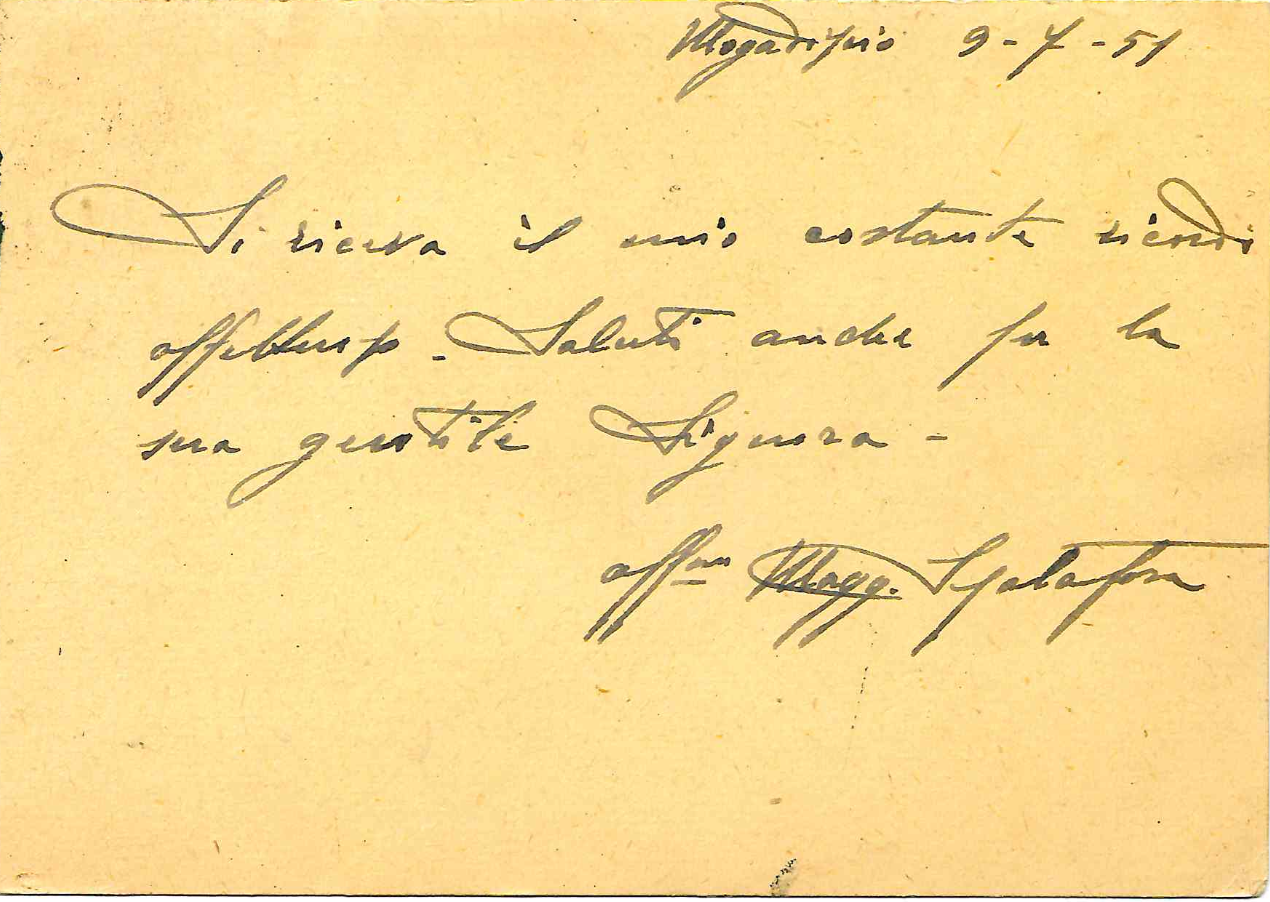 Mogadiscio 9-7-51
Si riceva il mio costante ricordo
affettuoso - Saluti anche per la
sua gentile Signora -
aff.mo Magg. Spatafora